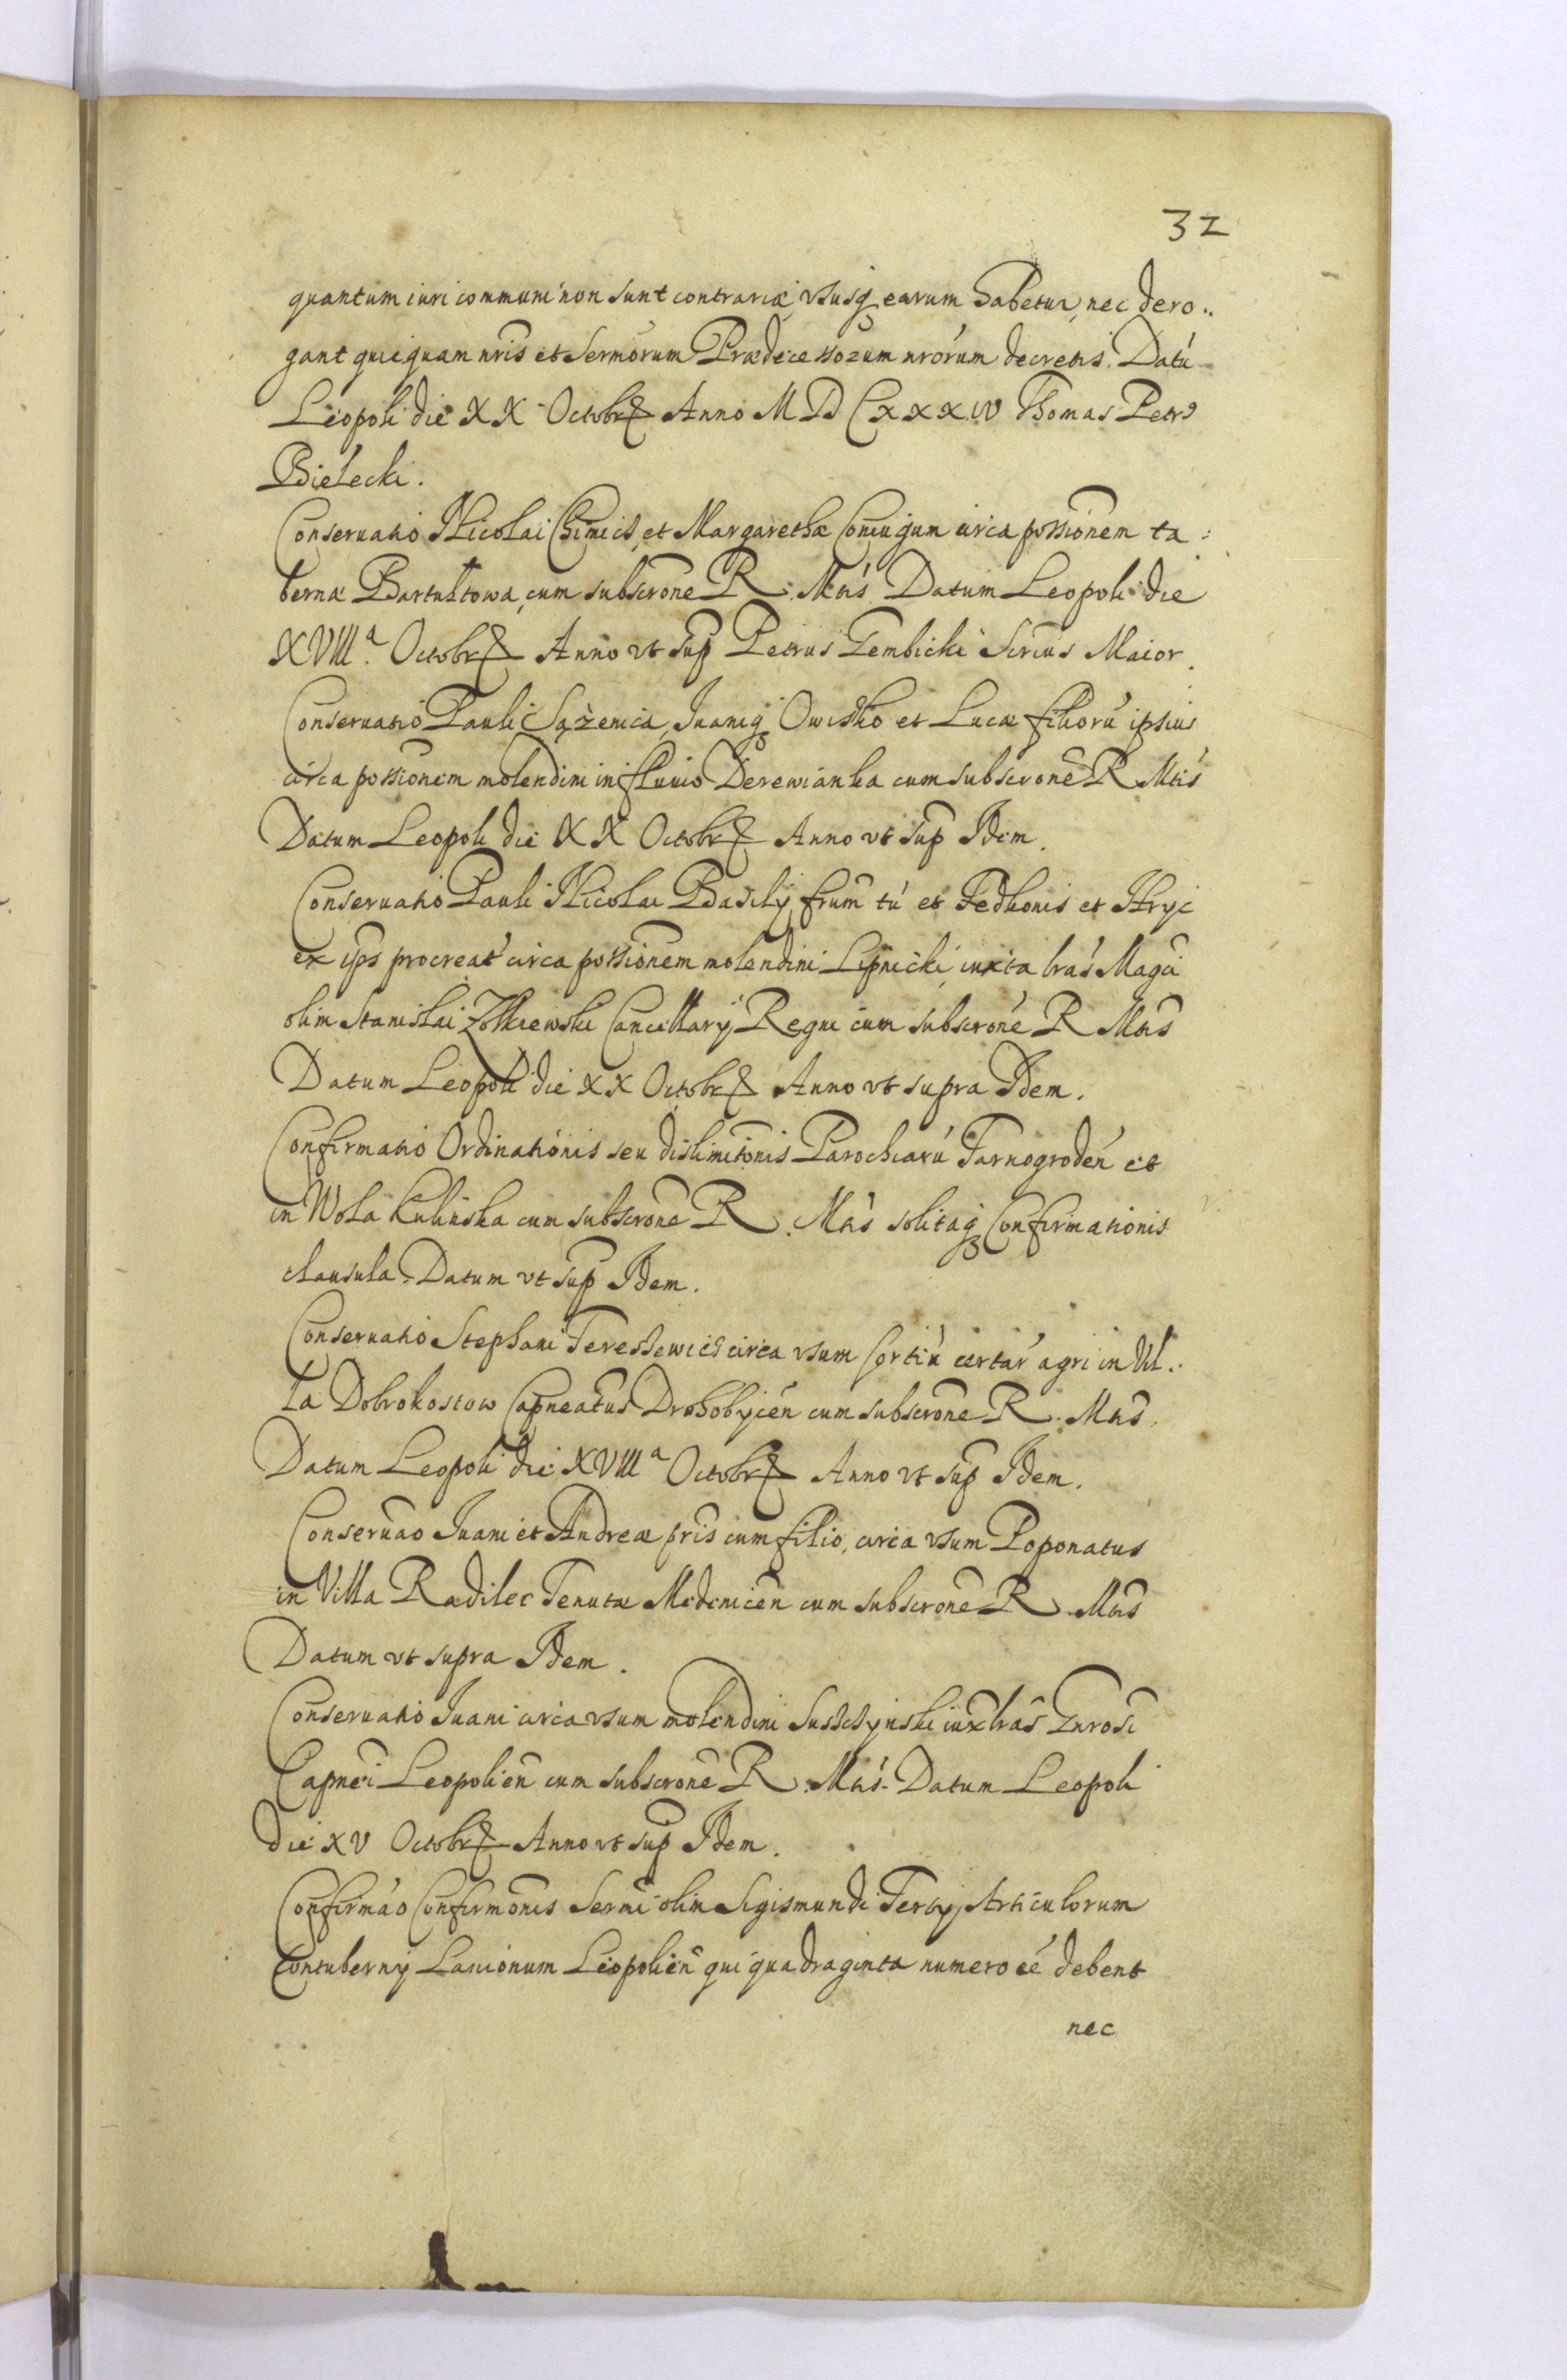 32
quantum iuri communi non sunt contrariæ vsusq earum habetur, nec dero..
gant quicquam nris et Sermorum Prædecessorum nrorum decretis. Datū
Leopoli die XX Octobr Anno MDCXXXIV Thomas Petrus
Bielecki.
Conseruatio Nicolai Chimicz et Margarethæ Coniugum circa possionem ta:
bernæ Bartultowa, cum subscrone R. Mtis Datum Leopoli die
XVIIIa. Octobr Anno vt sup Petrus Gembicki Scrius Maior.
Conseruatio Pauli Sążenica, Iuaniq Owisko et Lucæ filiorū ipsius
circa possionem molendini in fluuio Derewianka cum subscrone R Mtis
Datum Leopoli die XX Octobr Anno vt sup Idem.
Conseruatio Pauli Nicolai Basilij frum tū et Fedkonis et Hryc
ex ips procreat circa possionem molendini Lipnicki, iuxta lras Magci
olim Stanislai Zołkiewski Cancellarij Regni cum subscrone R Mtis
Datum Leopoli die XX Octobr Anno vt supra Idem.
Confirmatio Ordinationis seu dislimitonis Parochiarū Tarnogroden et
in Wola Kulinska cum subscrone R. Mtis solitaq Confirmationis
clausula. Datum vt sup Idem.
Conseruatio Stephani Teressewicz circa vsum sortiū certar agri in Vil..
la Dobrokostow Capneatus Drohobycen cum subscrone R. Mtis.
Datum Leopoli die XVIIIa Octobr Anno vt sup Idem.
Conseruao Iuani et Andreæ pris cum filio, circa vsum Poponatus
in Villa Radilec Tenutæ Medenicen cum subscrone R. Mtis
Datum vt supra Idem.
Conseruatio Iuani circa vsum molendini Susschynski iux lras Gnrosi
Capnei Leopolien cum subscrone R. Mtis. Datum Leopoli
die XV Octobr Anno vt sup Idem.
Confirmao Confirmonis Sermi olim Sigismundi Tertij Articulorum
Contubernij Lanionum Leopolien qui quadraginta numero eē debent
nec